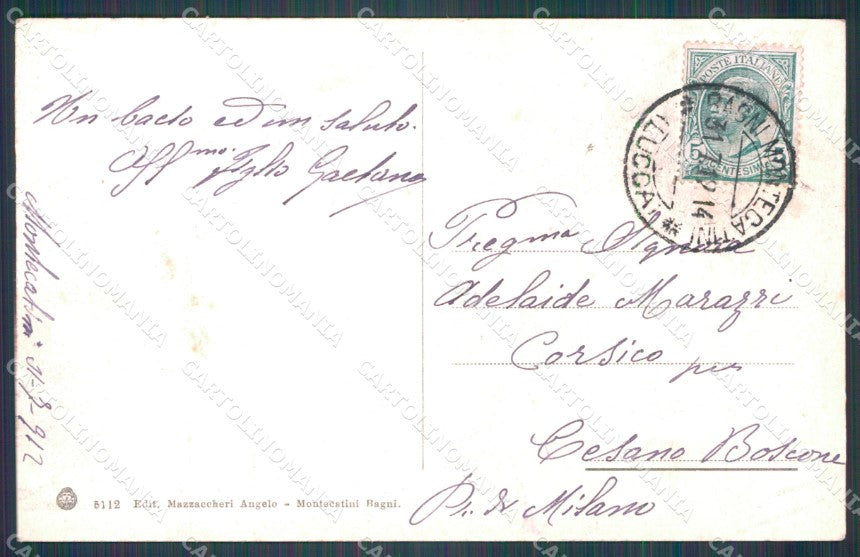 Un bacio ed un saluto.
Aff.mo figlio Gaetano
Montecatini
POSTE ITALIANE
BAGNI MONTECATINI
(LUCCA)
Preg.ma Signora
Adelaide Marazzi
Corsico per
Cesano Boscone
P. di Milano
5112 Edit. Mazzaccheri Angelo - Montecatini Bagni.
CARTOLINOMANIA